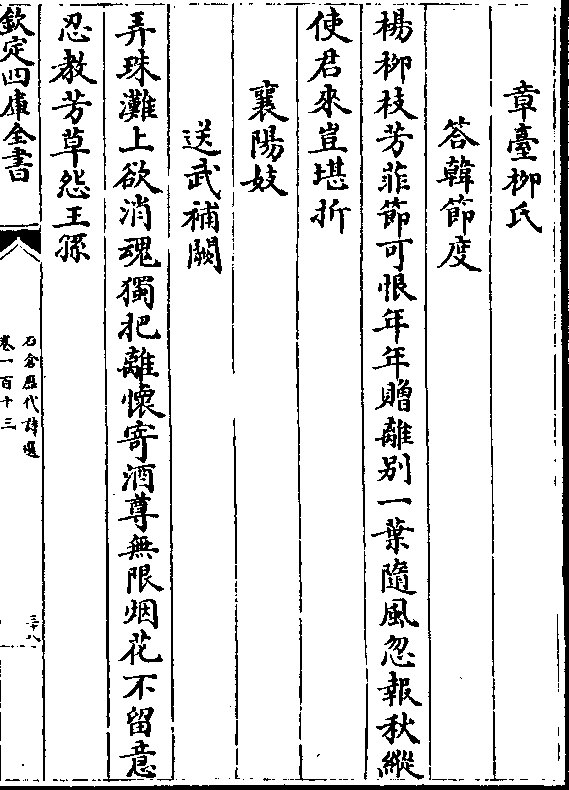 章臺柳氏
答韓節度
楊柳枝芳菲節可恨年年贈離别一葉隨風忽報秋縱
使君來豈堪折
襄陽妓
送武補闕
弄珠灘上欲消魂獨把離懷寄酒尊無限烟花不留意
忍教芳草怨王孫
欽定四庫全書
石倉歷代詩選
卷一百十三
三十八